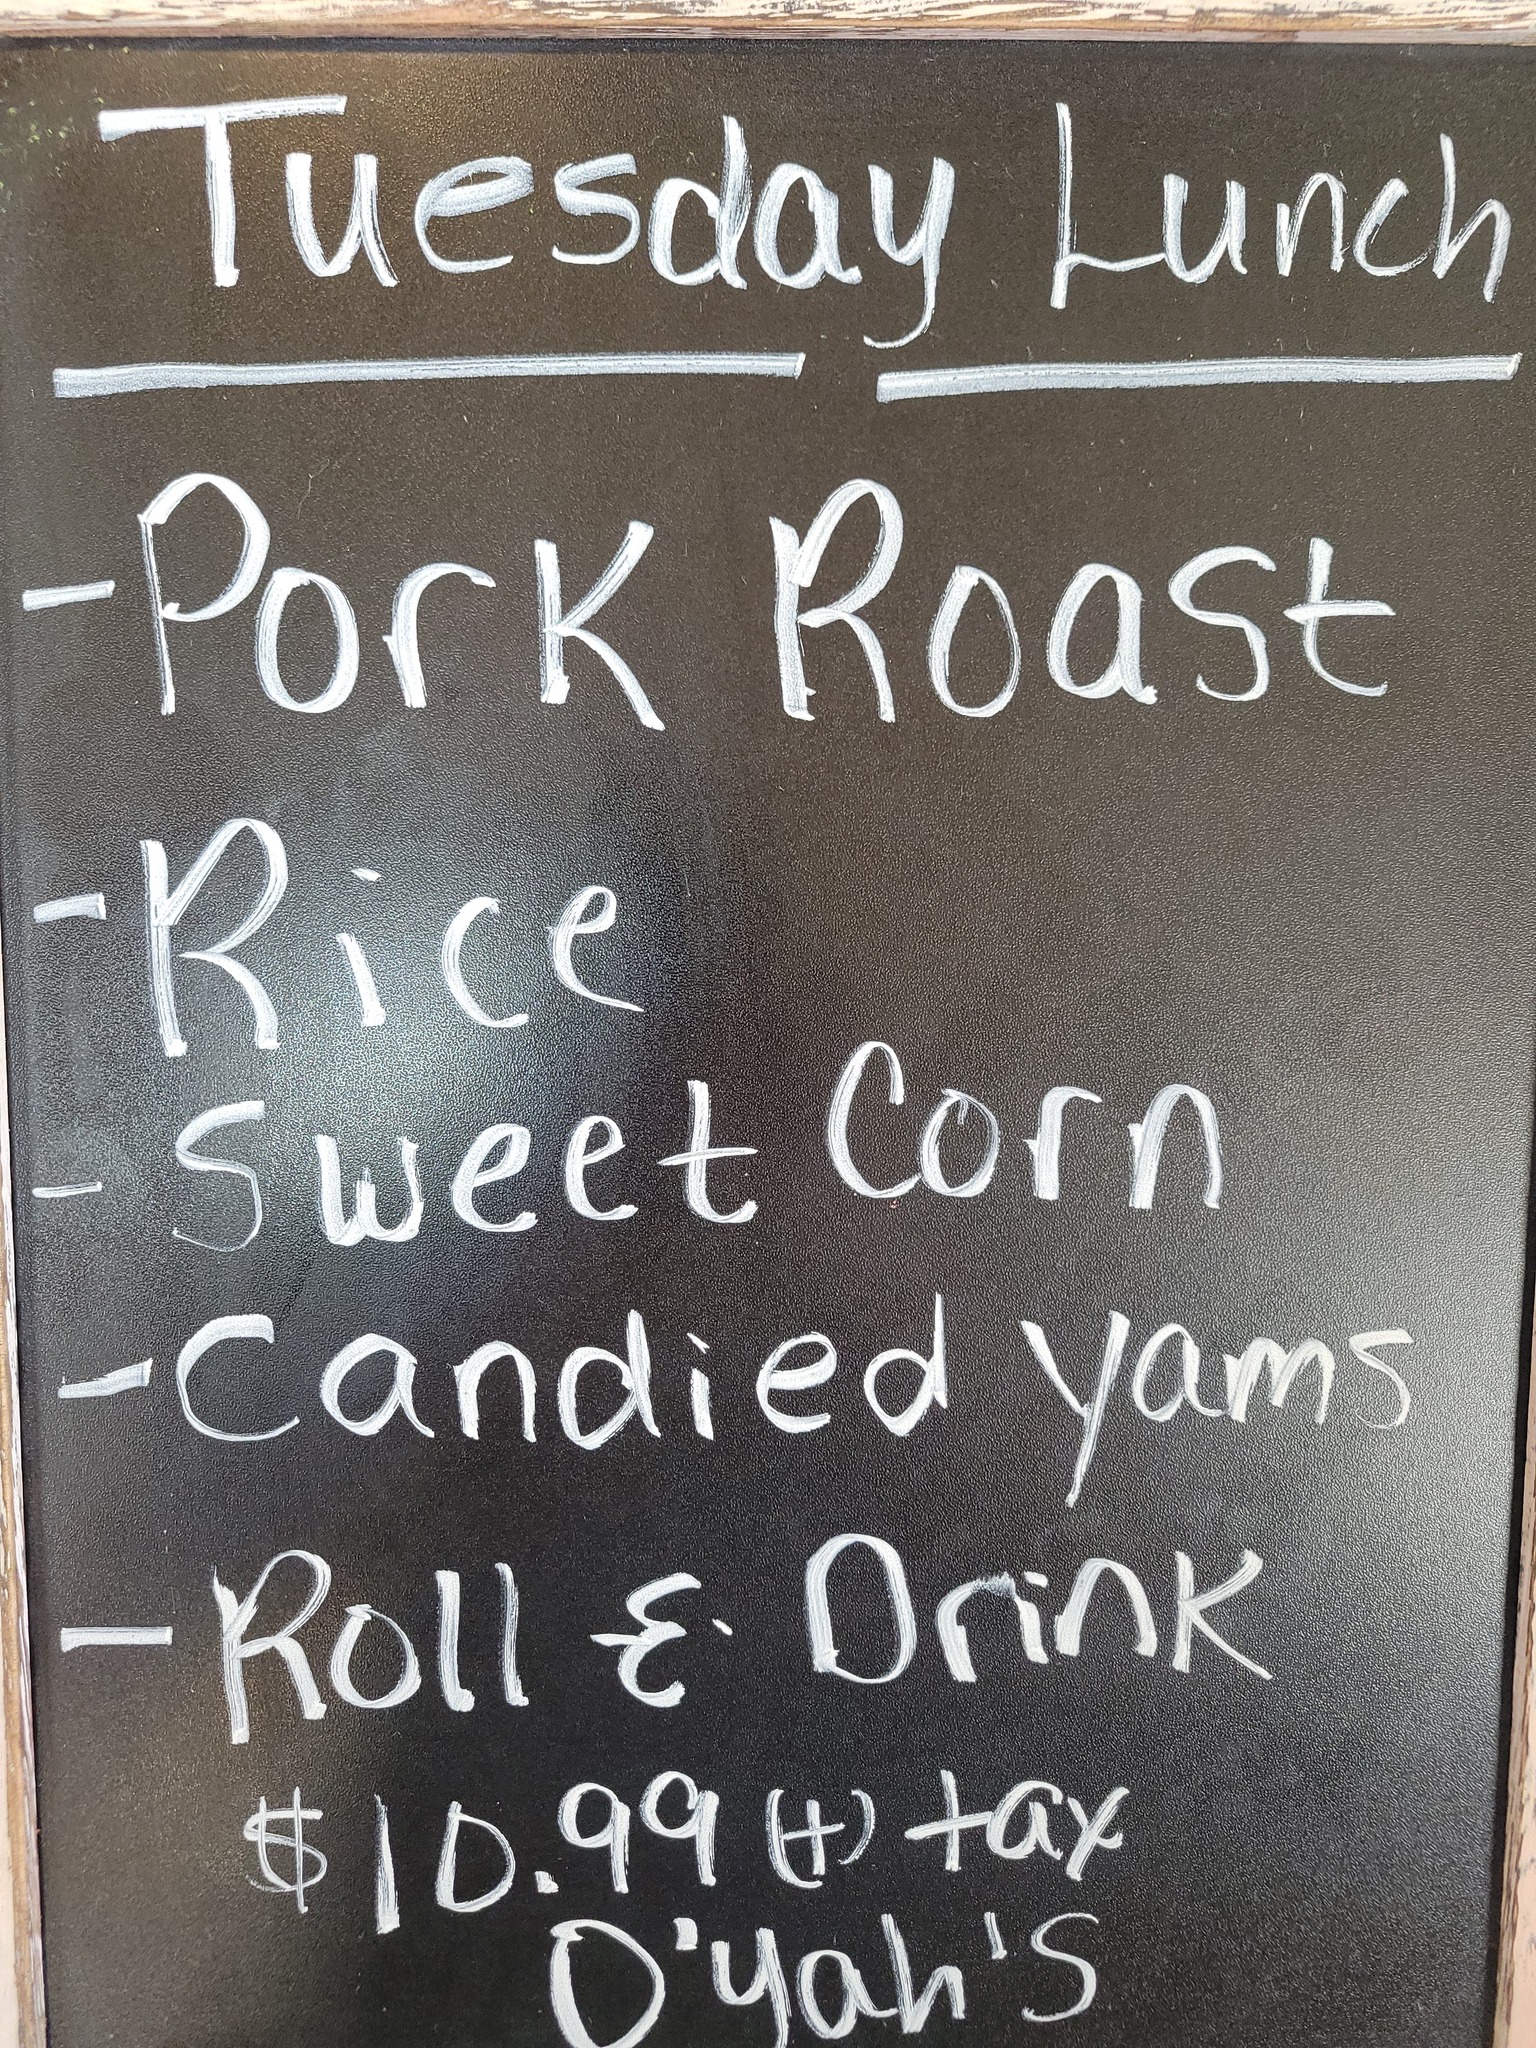 Tuesday Lunch
- Pork Roast
- Rice
- Sweet Corn
- Candied yams
- Roll & Drink
$10.99 (+) tax
O'yah's